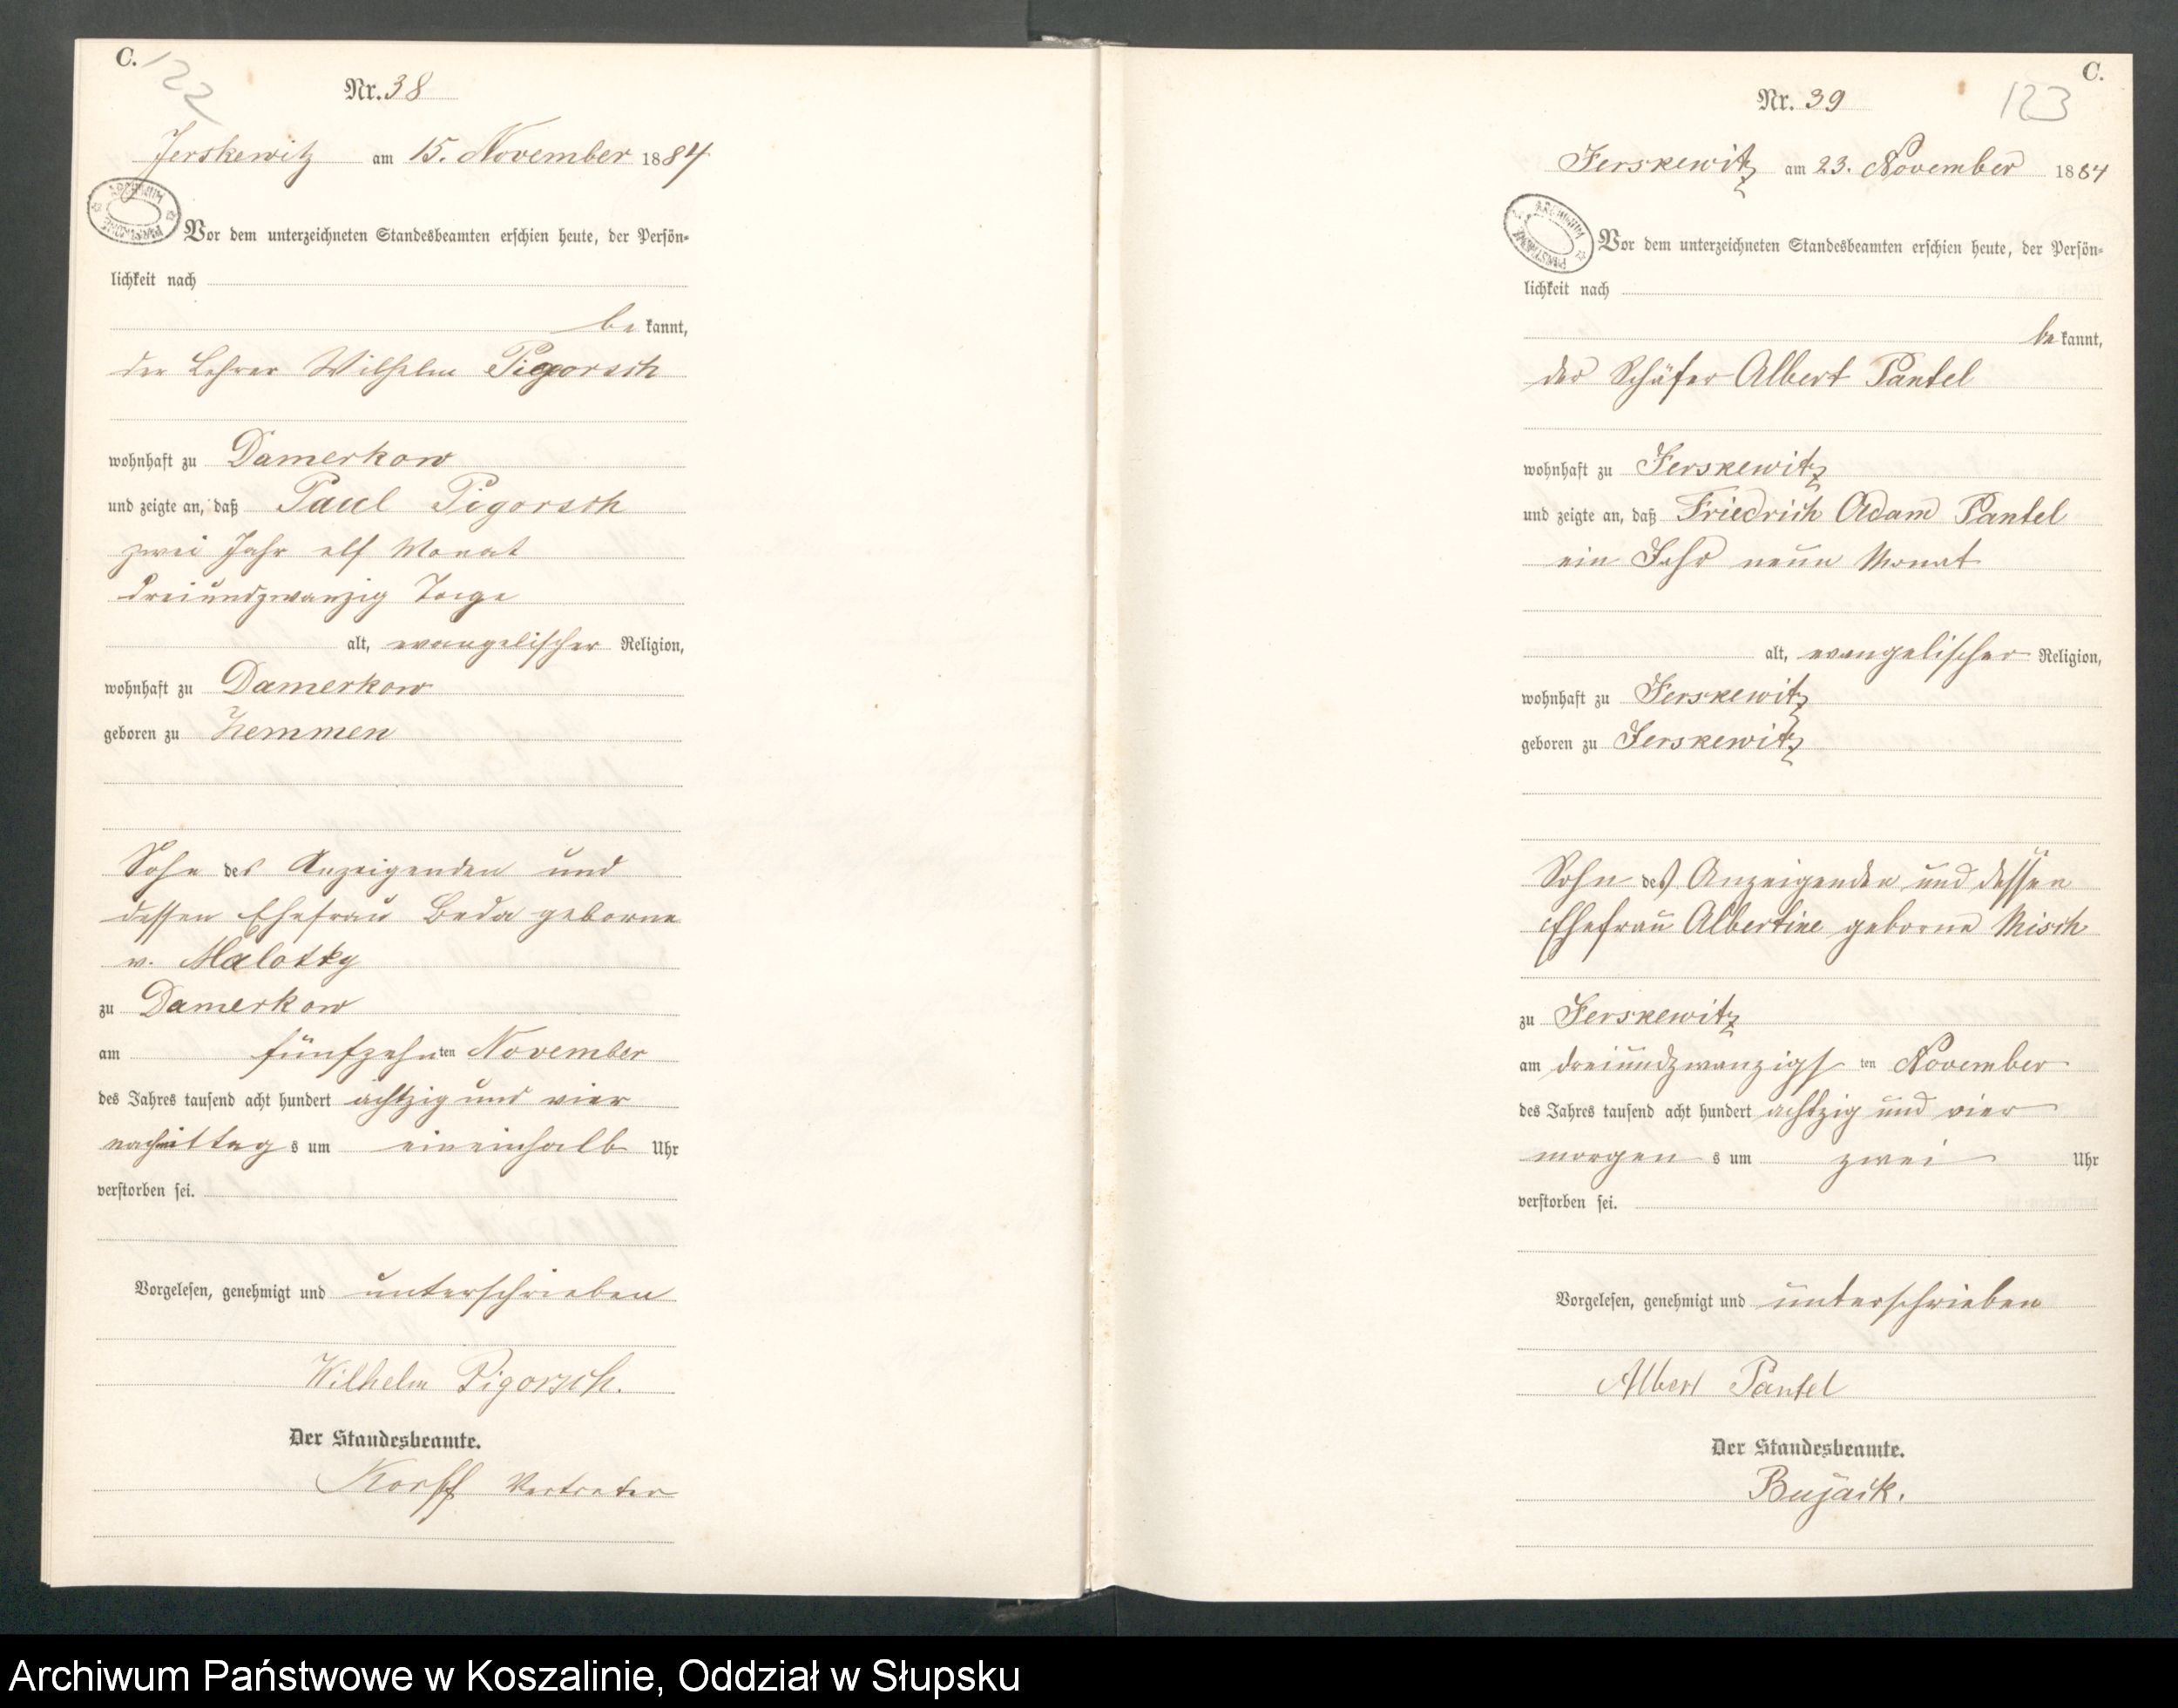 C.
122
Nr. 38
Jerskewitz am 15. November 1884
Vor dem unterzeichneten Standesbeamten erschien heute, der Persön-
lichkeit nach
be kannt,
der Lehrer Wilhelm Pigorsch
wohnhaft zu Damerkow
und zeigte an, daß Paul Pigorsch
zwei Jahr elf Monat
dreiundzwanzig Tage
alt, evangelischer Religion,
wohnhaft zu Damerkow
geboren zu Zemmen
Sohn des Anzeigenden und
dessen Ehefrau Beda geborne
v. Malotky
zu Damerkow
am fünfzehnten November
des Jahres tausend acht hundert achtzig und vier
nachmittags um eineinhalb Uhr
verstorben sei.
Vorgelesen, genehmigt und unterschrieben
Wilhelm Pigorsch.
Der Standesbeamte.
Korff Vertreter
C.
123
Nr. 39
Jerskewitz am 23. November 1884
Vor dem unterzeichneten Standesbeamten erschien heute, der Persön-
lichkeit nach
be kannt,
der Schäfer Albert Pantel
wohnhaft zu Jerskewitz
und zeigte an, daß Friedrich Adam Pantel
ein Jahr neun Monat
alt, evangelischer Religion,
wohnhaft zu Jerskewitz
geboren zu Jerskewitz
Sohn des Anzeigenden und dessen
Ehefrau Albertine geborne Misch
zu Jerskewitz
am dreiundzwanzigsten November
des Jahres tausend acht hundert achtzig und vier
morgens um zwei Uhr
verstorben sei.
Vorgelesen, genehmigt und unterschrieben
Albert Pantel
Der Standesbeamte.
Bujack.
Archiwum Państwowe w Koszalinie, Oddział w Słupsku